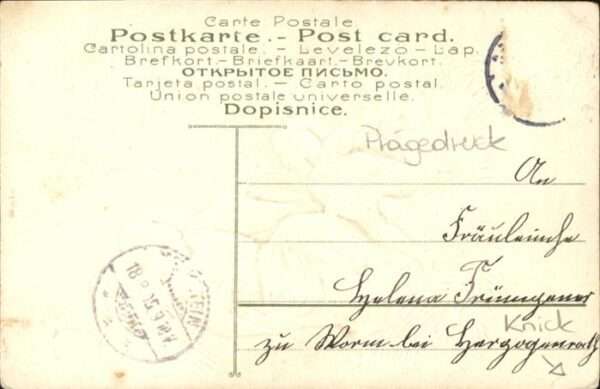 Carte Postale.
Postkarte.- Post card.
Cartolina postale. - Levelezo - Lap.
Brefkort.-Briefkaart.-Brevkort.
ОТКРЫТОЕ ПИСЬМО.
Tarjeta postal. - Carto postal.
Union postale universelle.
Dopisnice.
Prägedruck
An
Fräuleinche
Helena
Knick
zu Worm bei Herzogenrath